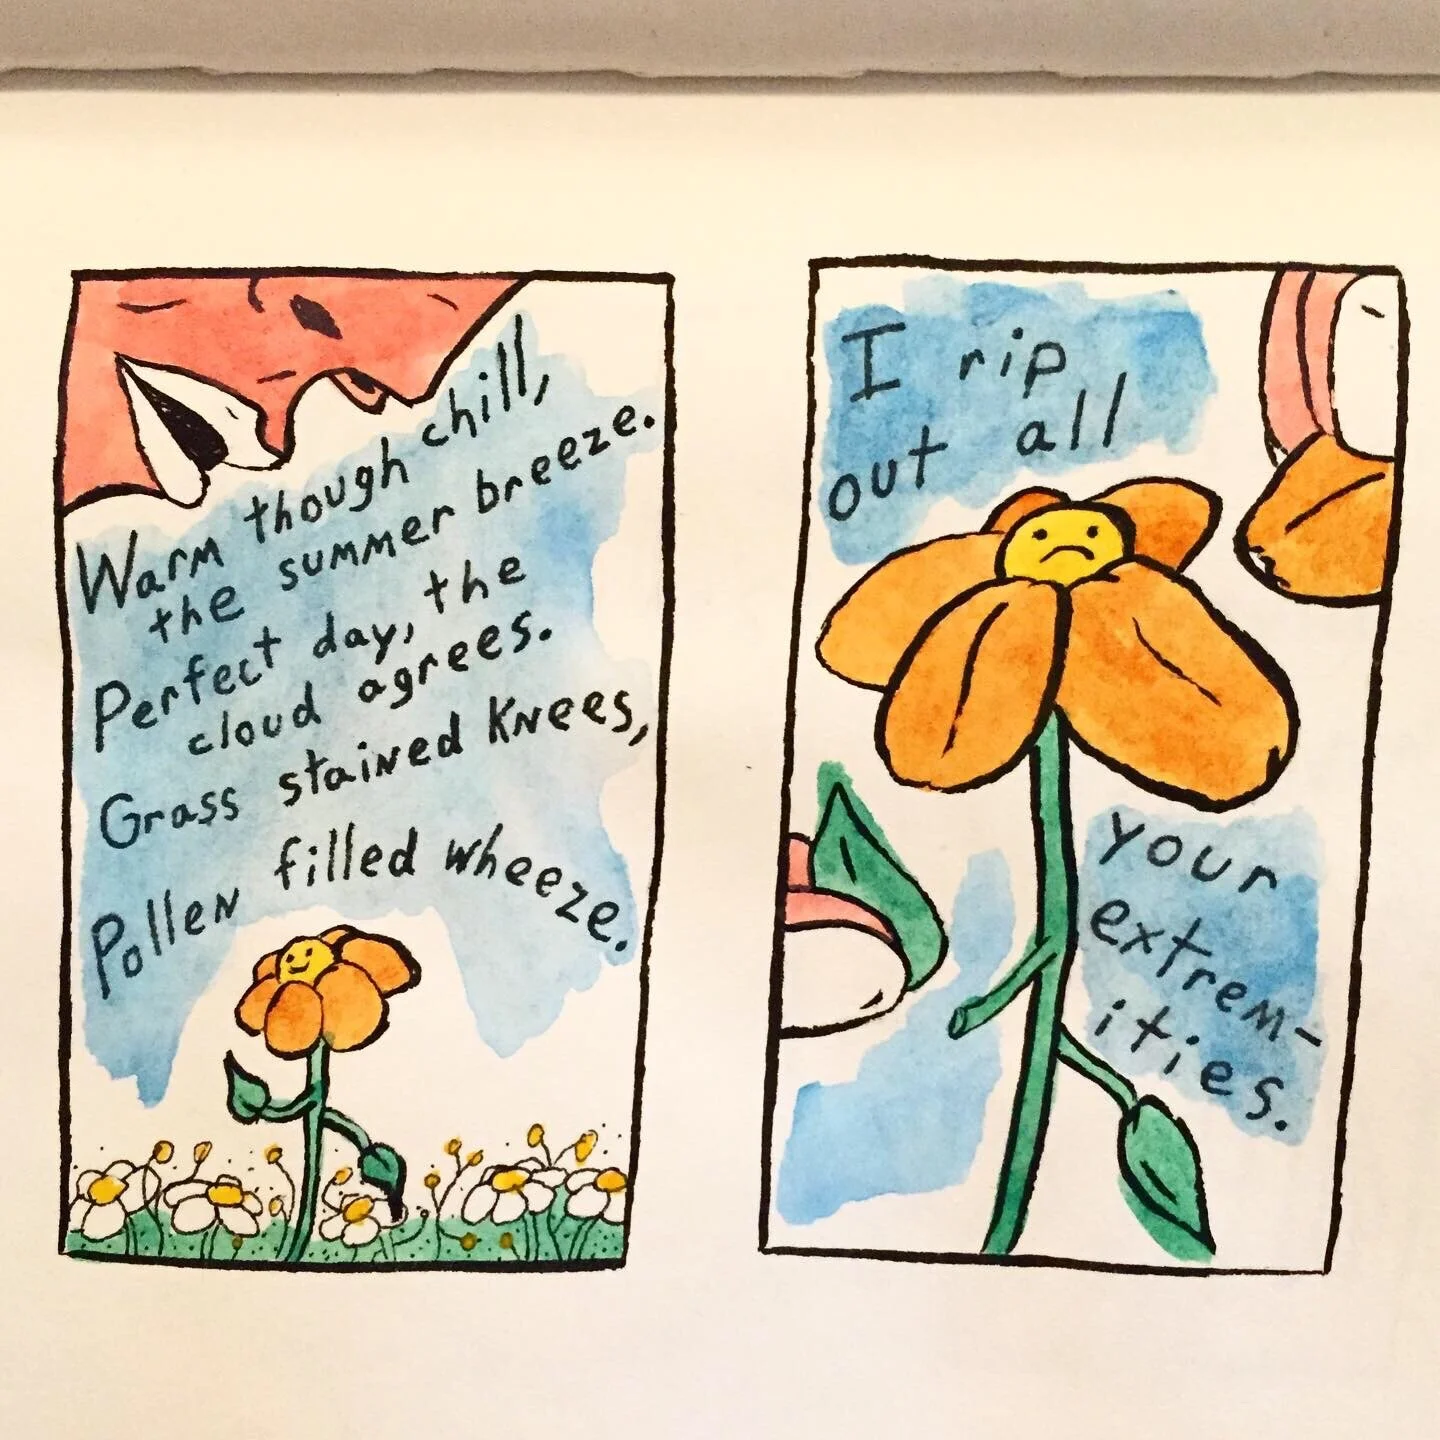 Warm though chill,
the summer breeze.
Perfect day, the
cloud agrees.
Grass stained knees,
Pollen filled wheeze.
I rip
out all
your
extrem-
ities.